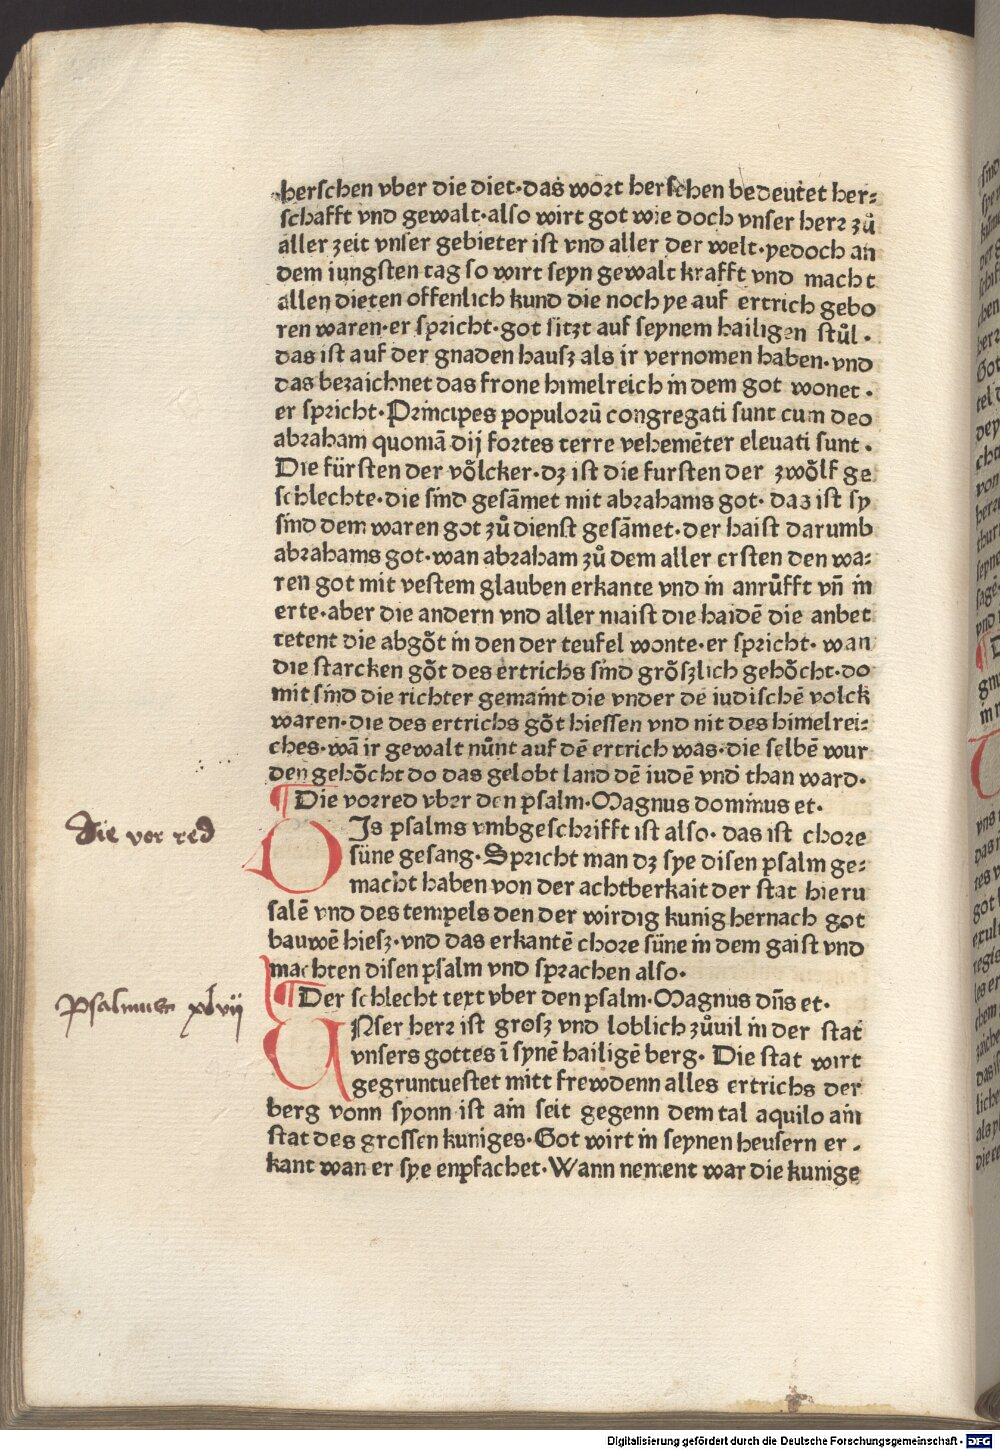 herſchen vber die diet·das wort herſchen bedeutet her⸗
ſchafft vnd gewalt·alſo wirt got wie doch vnſer herꝛ zů
aller zeit vnſer gebieter iſt vnd aller der welt·yedoch an
dem iungſten tag ſo wirt ſeyn gewalt krafft vnd macht
allen dieten offenlich kund die noch ye auf ertrich gebo
ren waren·er ſpricht·got ſitzt auf ſeynem hailigen ſtůl·
das iſt auf der gnaden hauſz als ir vernomen haben·vnd
das bezaichnet das frone himelreich in dem got wonet·
er ſpricht·Principes populorū congregati ſunt cum deo
abraham quoniā dij fortes terre vehemēter eleuati ſunt·
Die fürſten der võlcker·dz iſt die furſten der zwõlf ge
ſchlechte·die ſind geſāmet mit abrahams got·das iſt ſy
ſind dem waren got zů dienſt geſāmet·der haiſt darumb
abrahams got·wan abraham zů dem aller erſten den wa⸗
ren got mit veſtem glauben erkante vnd in anrůfft vñ in
erte·aber die andern vnd aller maiſt die haidē die anbet
tetent die abgõt in den der teufel wonte·er ſpricht·wan
die ſtarcken gõt des ertrichs ſind grõſzlich gehõcht·do
mit ſind die richter gemaint die vnder dē iudiſchē volck
waren·die des ertrichs gõt hieſſen vnd nit des himelrei⸗
ches·wā ir gewalt nůnt auf dē ertrich was·die ſelbē wur
den gehõcht do das gelobt land dē iudē vnd than ward·
¶Die vorred vber den pſalm·Magnus dominus et·
Die vor red
DIs pſalms vmbgeſchrifft iſt alſo·das iſt chore
ſüne geſang·Spricht man dz ſye diſen pſalm ge⸗
macht haben von der achtberkait der ſtat hieru
ſalē vnd des tempels den der wirdig kunig hernach got
bauwē hieſz·vnd das erkantē chore ſüne in dem gaiſt vnd
machten diſen pſalm vnd ſprachen alſo·
¶Der ſchlecht text vber den pſalm·Magnus dñs et·
Psalmus xlvij
VNſer herꝛ iſt groſz vnd loblich zůuil in der ſtat
vnſers gottes ī ſynē hailigē berg·Die ſtat wirt
gegruntueſtet mitt frewdenn alles ertrichs der
berg vonn ſyonn iſt ain ſeit gegenn dem tal aquilo ain
ſtat des groſſen kuniges·Got wirt in ſeynen heuſern er·
kant wan er ſye enpfachet·Wann nement war die kunige
Digitalisierung gefördert durch die Deutsche Forschungsgemeinschaft - DFG